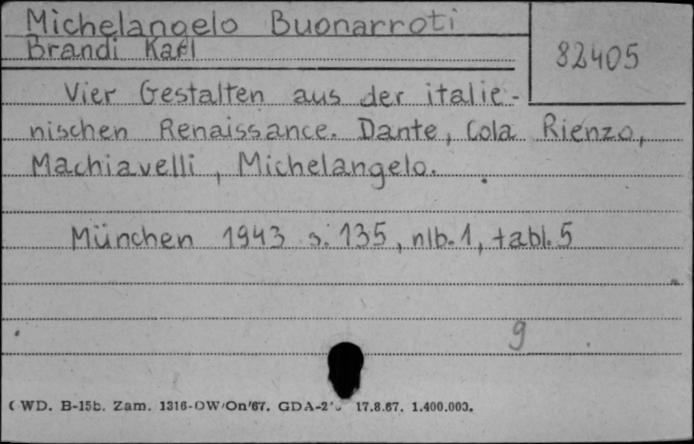 Michelangelo Buonarroti
Brandi Karl
82405
Vier Gestalten aus der italie-
nischen Renaissance. Dante, Cola Rienzo,
Machiavelli, Michelangelo.
München 1943 s. 135, nlb. 1, tabl. 5
9
WD. B-15b. Zam. 1316-OW/On/67. 17.8.67. 1.400.000.